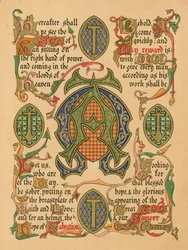 Hereafter shall
ye see the
Son of
Man sitting on
the right hand of power
and coming in the
clouds of
heaven
Behold I
come
quickly; and
My reward is
with me
to give every man
according as his
work shall be
Let us,
who are
of the
day,
be sober, putting on
the breastplate of
Faith and Love:
and for an helmet, the
hope of Salvation
Looking
for that
blessed
hope & the glorious
appearing of the
Great God
our Saviour